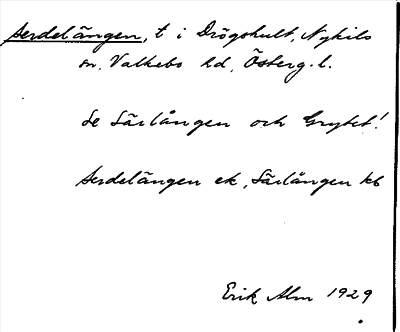 Serdelängen, t i Drögshult, Nykils
sn. Valkebo hd, Österg. l.
Se Särlången och Grytet!
Serdelängen ek, Särlången kb
Erik Alm 1929